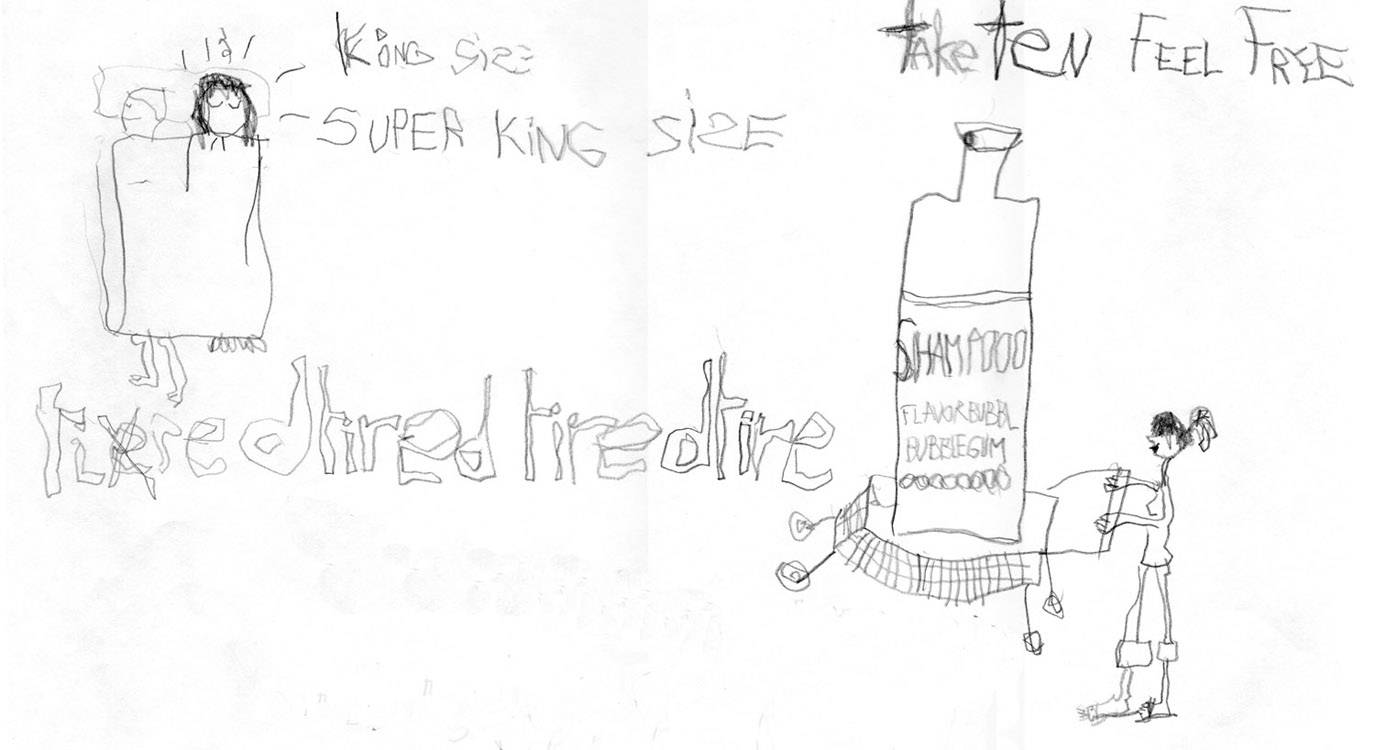 KiNG SiZE
SUPER KiNG SiZE
take ten FEEL FREE
tired tired tired tire
SHAMPOOO
FLAVOR BUBBL
BUBBLEGUM